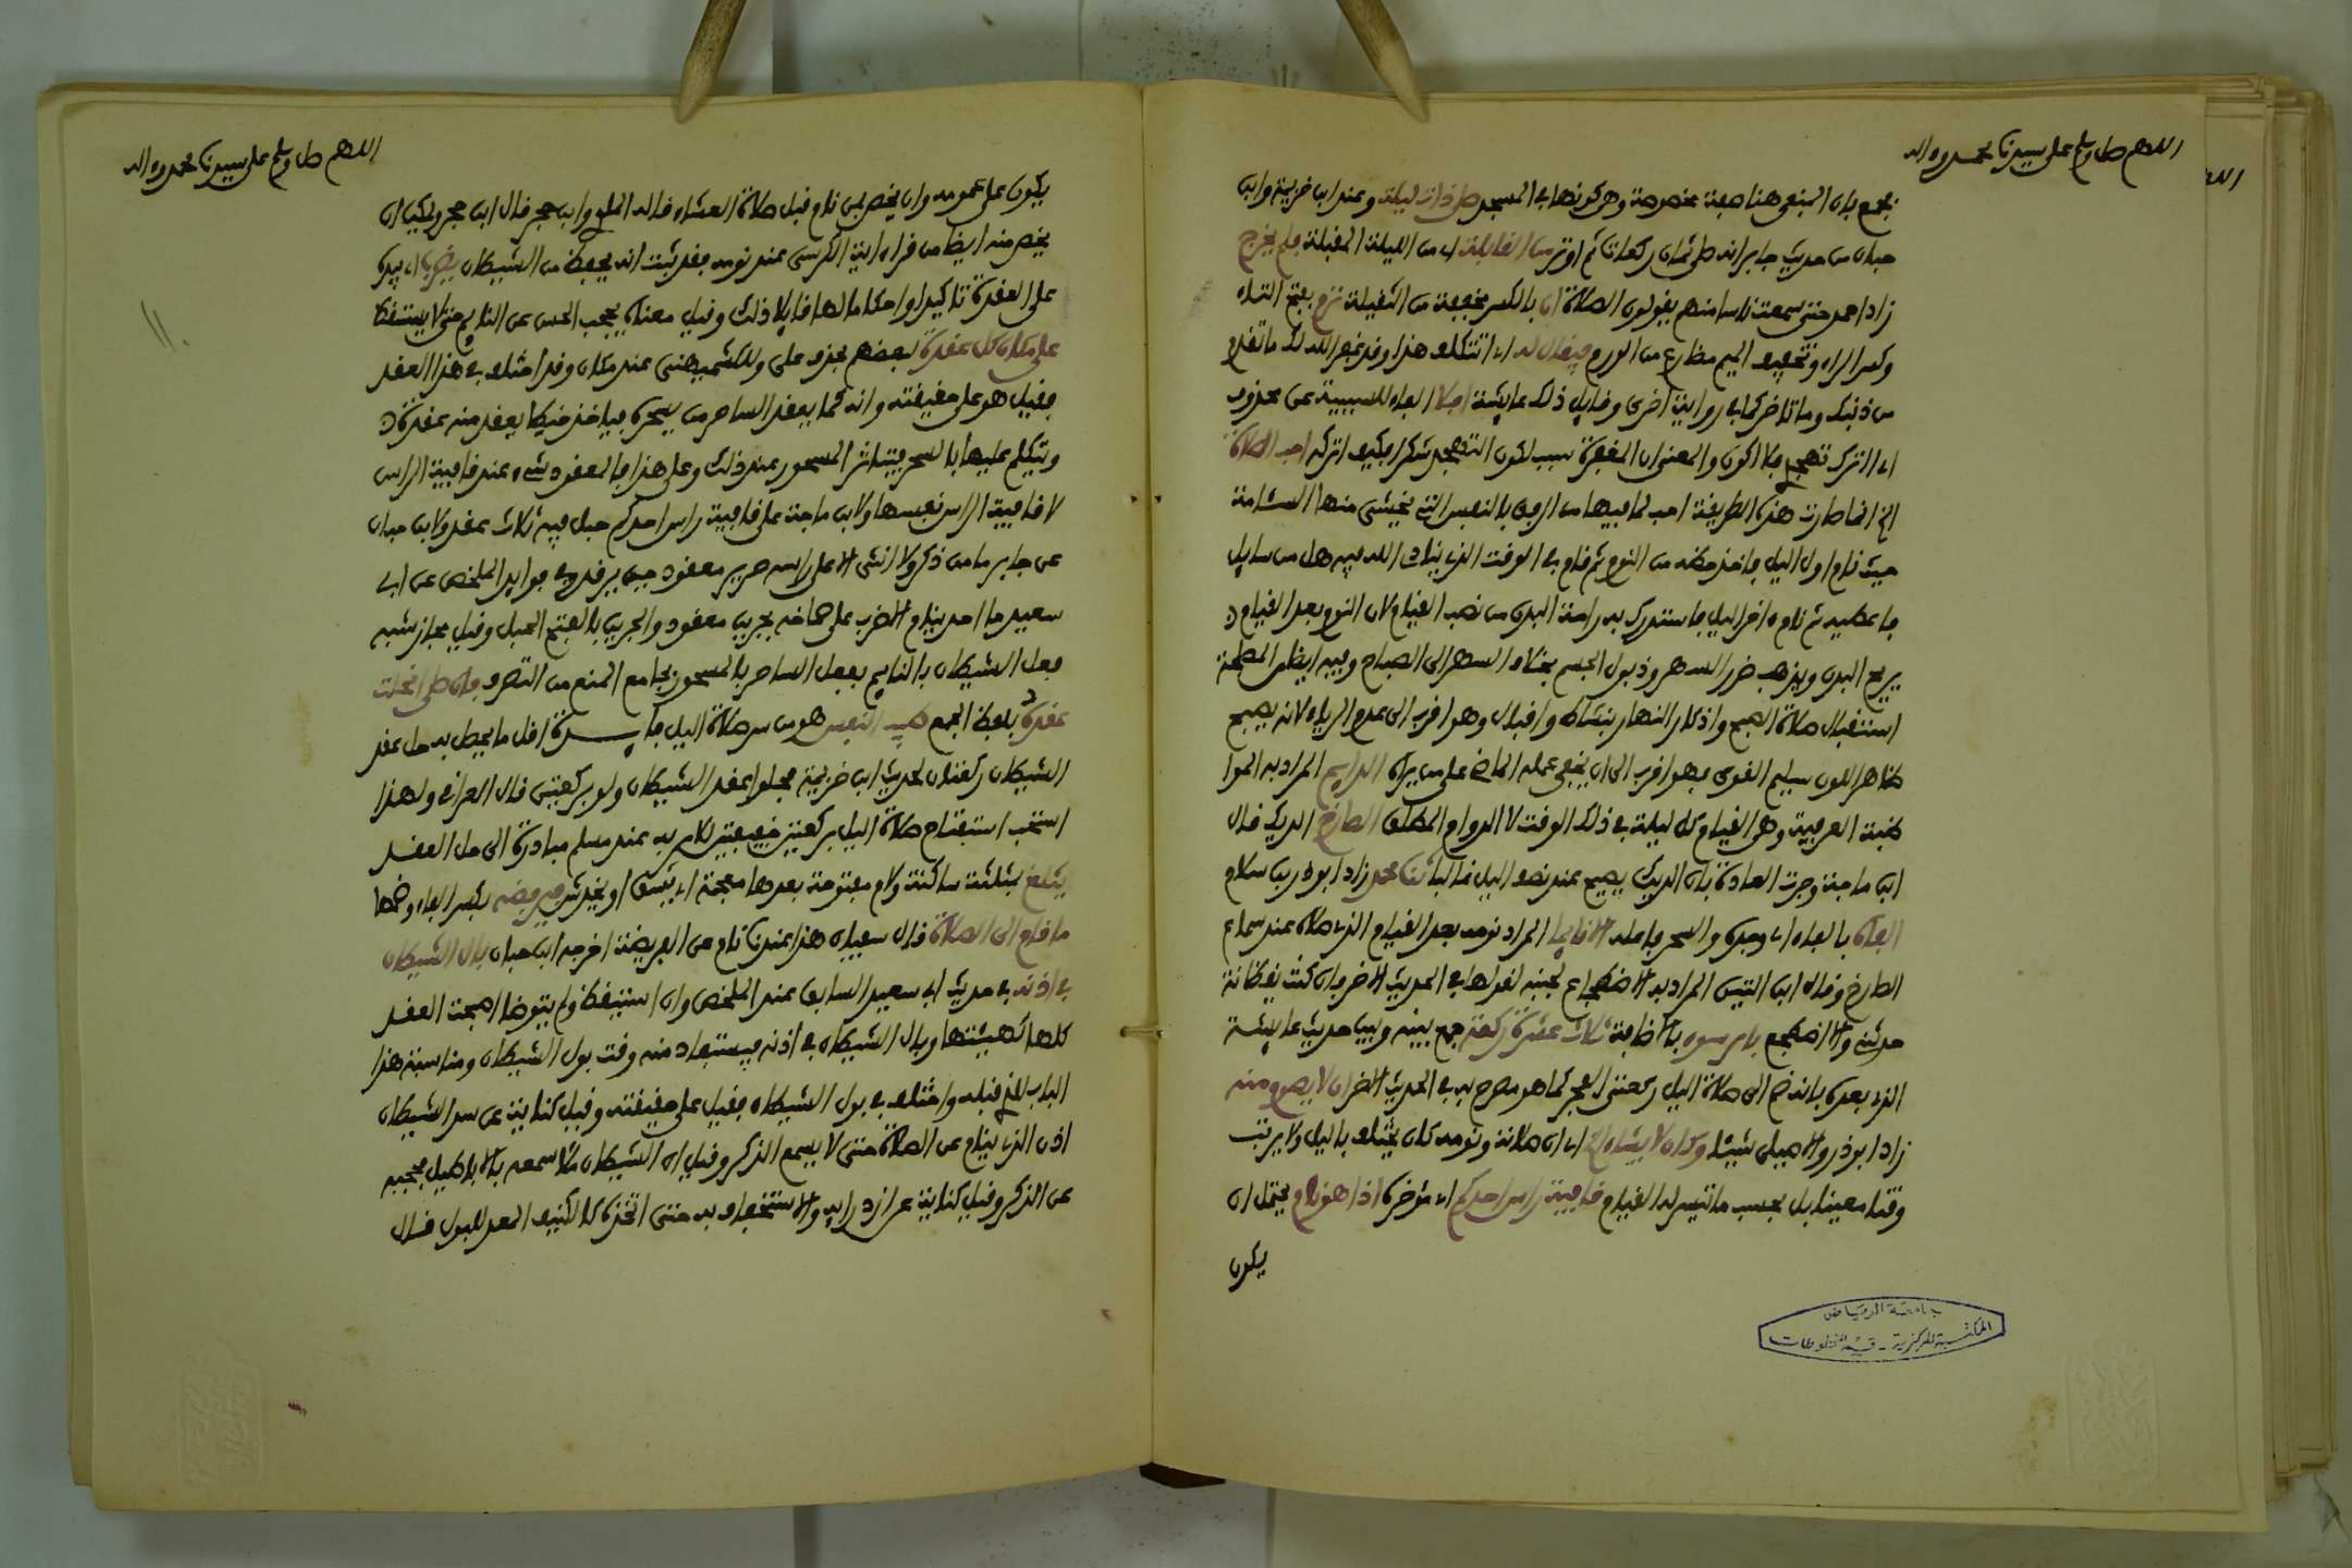 اللهم صل وسلم على سيدنا محمد وءاله
يجمع بان المنفي هنا صفة مخصوصة وهي كونها في المسجد صلى ذات ليلة وعند ابن خزيمة وابن
حبان من حديث جابر انه صلى ثمان ركعات ثم اوتر من القابلة اي من الليلة المقبلة فلم يخرج
زاد احمد حتى سمعت ناسا منهم يقولون الصلاة ان بالكسر مخففة من الثقيلة ترم بفتح التاء
وكسر الراء وتخفيف الميم مضارع من الورم فيقال له اي اتتكلف هذا وقد غفر الله لك ما تقدم
من ذنبك وما تاخر كما في رواية اخرى وقايل ذلك عايشة افلا الفاء للسببية عن محذوف
اي اترك تهجدي فلا اكون والمعنى ان المغفرة سبب لكون التهجد شكرا فكيف اتركه احب الصلاة
الخ انما صارت هذه الطريقة احب لما فيها من الرفق بالنفس التي يخشى منها السئامة
حيث نام اول الليل فاخذ حظه من النوم ثم قام في الوقت الذي ينادي الله فيه هل من سايل
فاعطيه ثم نام ءاخر الليل فاستدرك به راحة البدن من نصب القيام لان النوم بعد القيام
يريح البدن ويذهب ضرر السهر وذبول الجسم بخلاف السهر الى الصباح وفيه ايضا المصلحة
استقبال صلاة الصبح واذكار النهار بنشاط واقبال وهو اقرب الى عدم الرياء لانه يصبح
ظاهر اللون سليم القوى فهو اقرب الى ان يخفي عمله الماضي على من يراه الدايم المراد به الموا
ظبة العرفية وهي القيام كل ليلة في ذلك الوقت لا الدوام المطلق الصارخ الديك قال
ابن ماجة وجرت العادة بان الديك يصيح عند نصف الليل غالبا ثنا محمد زاد ابو ذر بن سلام
الفاه بالفاء اي وجده والسحر فاعله الا نايما المراد نومه بعد القيام الذي مبداه عند سماع
الصارخ وقال ابن التين المراد به الاضطجاع لجنبه لقولها في الحديث الاخر فان كنت يقظانة
حدثني والا اضطجع بامر سوء بالاضافة ثلاث عشرة ركعة جمع بينه وبين حديث عايشة
الذي بعده بانه ضم الى صلاة الليل ركعتي الفجر كما هو مصرح به في الحديث الاخر ان لا يصوم منه
زاد ابو ذر والاصيلي شيئا وكان لا تشاء الخ اي ان صلاته ونومه كان يختلف بالليل ولا يرتب
وقتا معينا بل بحسب ما تيسر له القيام قافية راس احدكم اي مؤخره اذا هو نام يحتمل ان
يكون
جامعة الرياض
المكتبة المركزية - قسم المخطوطات
اللهم صل وسلم على سيدنا محمد وءاله
يكون على عمومه وان يخص بمن نام قبل صلاة العشاء قاله الملوي وابن حجر قال ابن حجر ويمكن ان
يخص منه ايضا من قرا ءاية الكرسي عند نومه فقد ثبت انه يحفظ من الشيطان يضرب اي بيده
على العقدة تاكيدا واحكاما لها قايلا ذلك وقيل معناه يحجب الحس عن النايم حتى لا يستيقظ
على مكان كل عقدة لبعضهم بحذف على وللكشميهني عند مكان وقد اختلف في هذا العقد
فقيل هو على حقيقته وانه كما يعقد الساحر من يسحره فياخذ خيطا يعقد منه عقدة
ويتكلم عليها بالسحر فيتاثر المسحور عند ذلك وعلى هذا فالمعقود شيء عند قافية الراس
لا قافية الراس نفسها ولابن ماجة على قافية راس احدكم حبل فيه ثلاث عقد ولابن حبان
عن جابر ما من ذكر ولا انثى الا على راسه جرير معقود حين يرقد وفي فوايد المخلص عن ابي
سعيد ما احد ينام الا ضرب على صماخه بجرير معقود والجرير بالفتح الحبل وقيل مجاز شبه
فعل الشيطان بالنايم بفعل الساحر بالمسحور بجامع المنع من التصرف فان صلى انحلت
عقده بلفظ الجمع طيب النفس هو من سر صلاة الليل فايدة اقل ما يحصل به حل عقد
الشيطان ركعتان لحديث ابن خزيمة فحلوا عقد الشيطان ولو بركعتين قال العراقي ولهذا
استحب استفتاح صلاة الليل بركعتين خفيفتين للامر به عند مسلم مبادرة الى حل العقد
يثلغ بمثلثة ساكنة ولام مفتوحة بعدها معجمة اي يشق او يخدش فيرفضه بكسر الفاء وضمها
ما قام الى الصلاة قال سفيان هذا عندنا نام عن الفريضة اخرجه ابن حبان بال الشيطان
في اذنه في حديث ابي سعيد السابق عند المخلص وان استيقظ ولم يتوضا اصبحت العقد
كلها كهيئتها وبال الشيطان في اذنه فيستفاد منه وقت بول الشيطان ومناسبة هذا
الباب للذي قبله واختلف في بول الشيطان فقيل على حقيقته وقيل كناية عن سد الشيطان
اذن الذي ينام عن الصلاة حتى لا يسمع الذكر وقيل ان الشيطان ملا سمعه بالاباطيل فحجبه
عن الذكر وقيل كناية عن ازدرايه والاستخفاف به حتى اتخذه كالكنيف المعد للبول قال